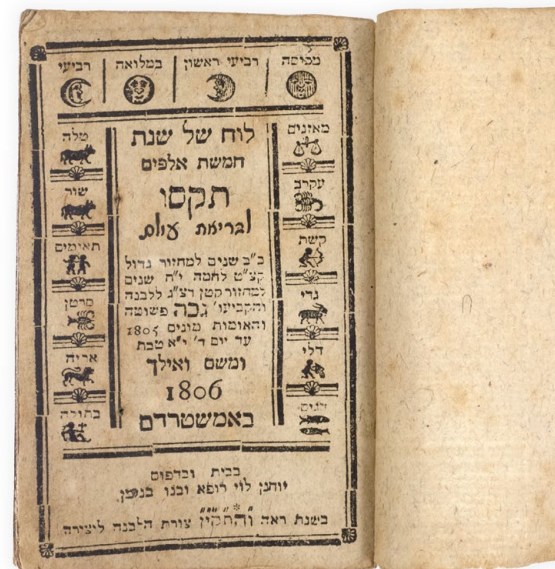 מכוסה רביעי ראשון במלואה רביעי
מאזנים
עקרב
קשת
גדי
דלי
דגים
לוח של שנת
חמשת אלפים
תקסו
לבריאת עולם
ב"ב שנים למחזור גדול
קצ"ט לחמה י"ח שנים
למחזור קטן רצ"ג ללבנה
והקביעו' גכה פשוטה
והאומות מונים 1805
עד יום ד' י"א טבת
ומשם ואילך
1806
באמשטרדם
טלה
שור
תאומים
סרטן
אריה
בתולה
בבית ובדפוס
יוחנן לוי רופא ובנו בנימן.
בשנת ראה והתקין צורת הלבנה ליצירה